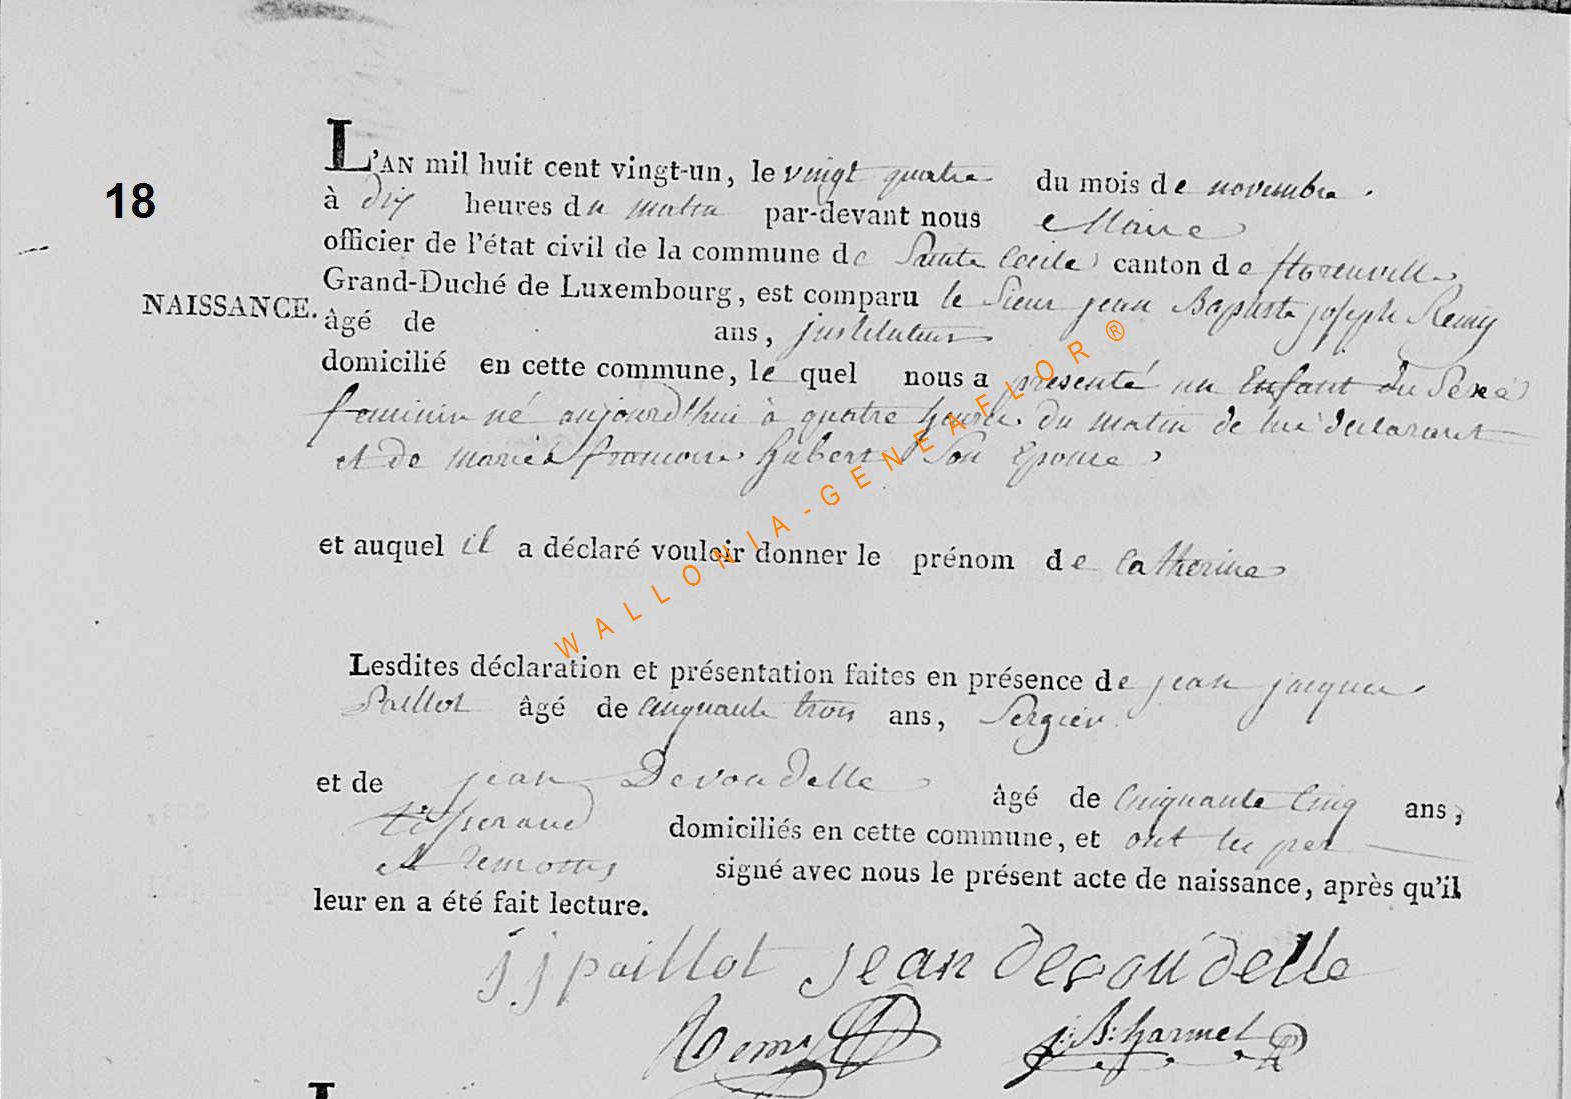 18
NAISSANCE.
L'AN mil huit cent vingt-un, le vingt quatre du mois de novembre
à dix heures du matin par-devant nous Maire
officier de l'état civil de la commune de Sainte Cecile canton de florenville
Grand-Duché de Luxembourg, est comparu le Sieur jean Baptiste joseph Remy
âgé de ans, instituteur
domicilié en cette commune, le quel nous a presenté un Enfant du Sexe
feminin né aujourd'hui à quatre heures du matin de lui déclarant
et de marie francoise hubert Son Epouse
et auquel il a déclaré vouloir donner le prénom de Catherine
Lesdites déclaration et présentation faites en présence de jean jacques
Paillot âgé de cinquante trois ans, Sergier
et de jean Devoudelle âgé de Cinquante Cinq ans,
tisserand domiciliés en cette commune, et ont les per
et temoins signé avec nous le présent acte de naissance, après qu'il
leur en a été fait lecture.
j j paillot jean devoudelle
Remy j: B: harmel
L
WALLONIA-GENEAFLOR ®